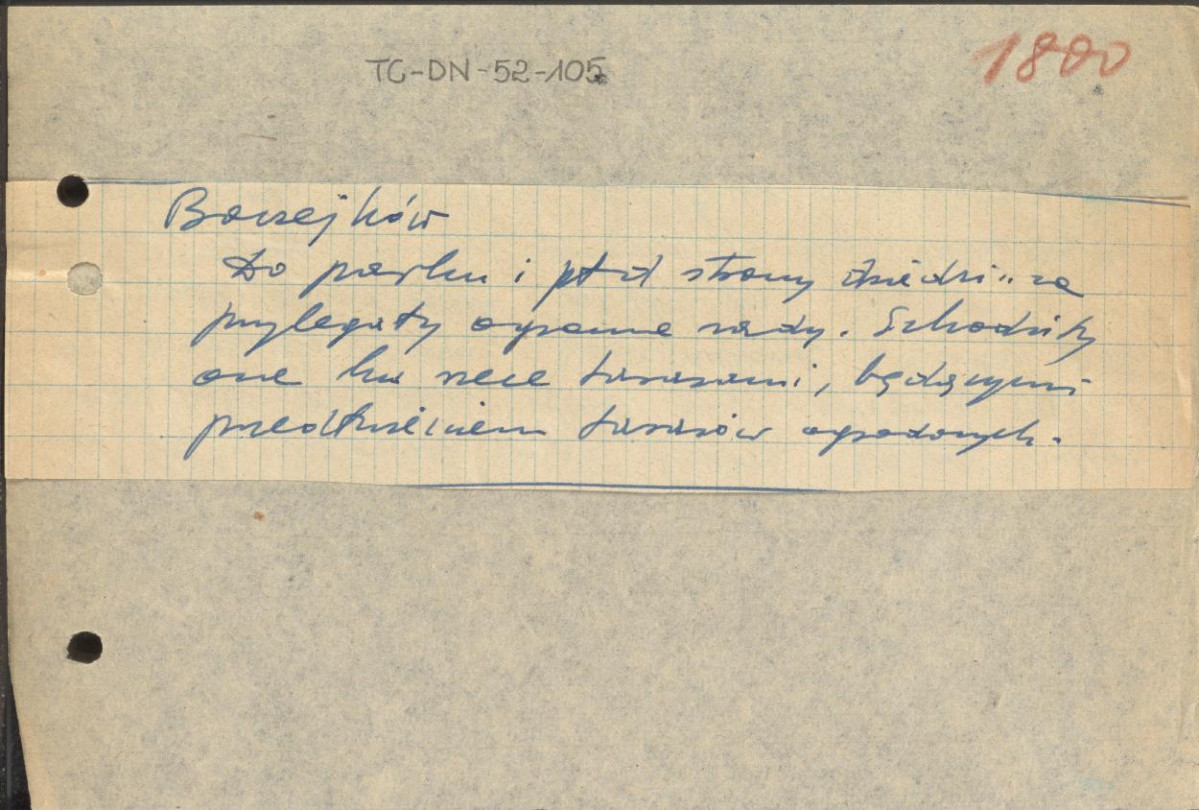 TC-DN-52-105
1800
Borzejków
Do parku i od strony dziedzińca
przylegały ogromne sady. Schodziły
one ku rzece tarasami, będącymi
przedłużeniem tarasów ogrodowych.